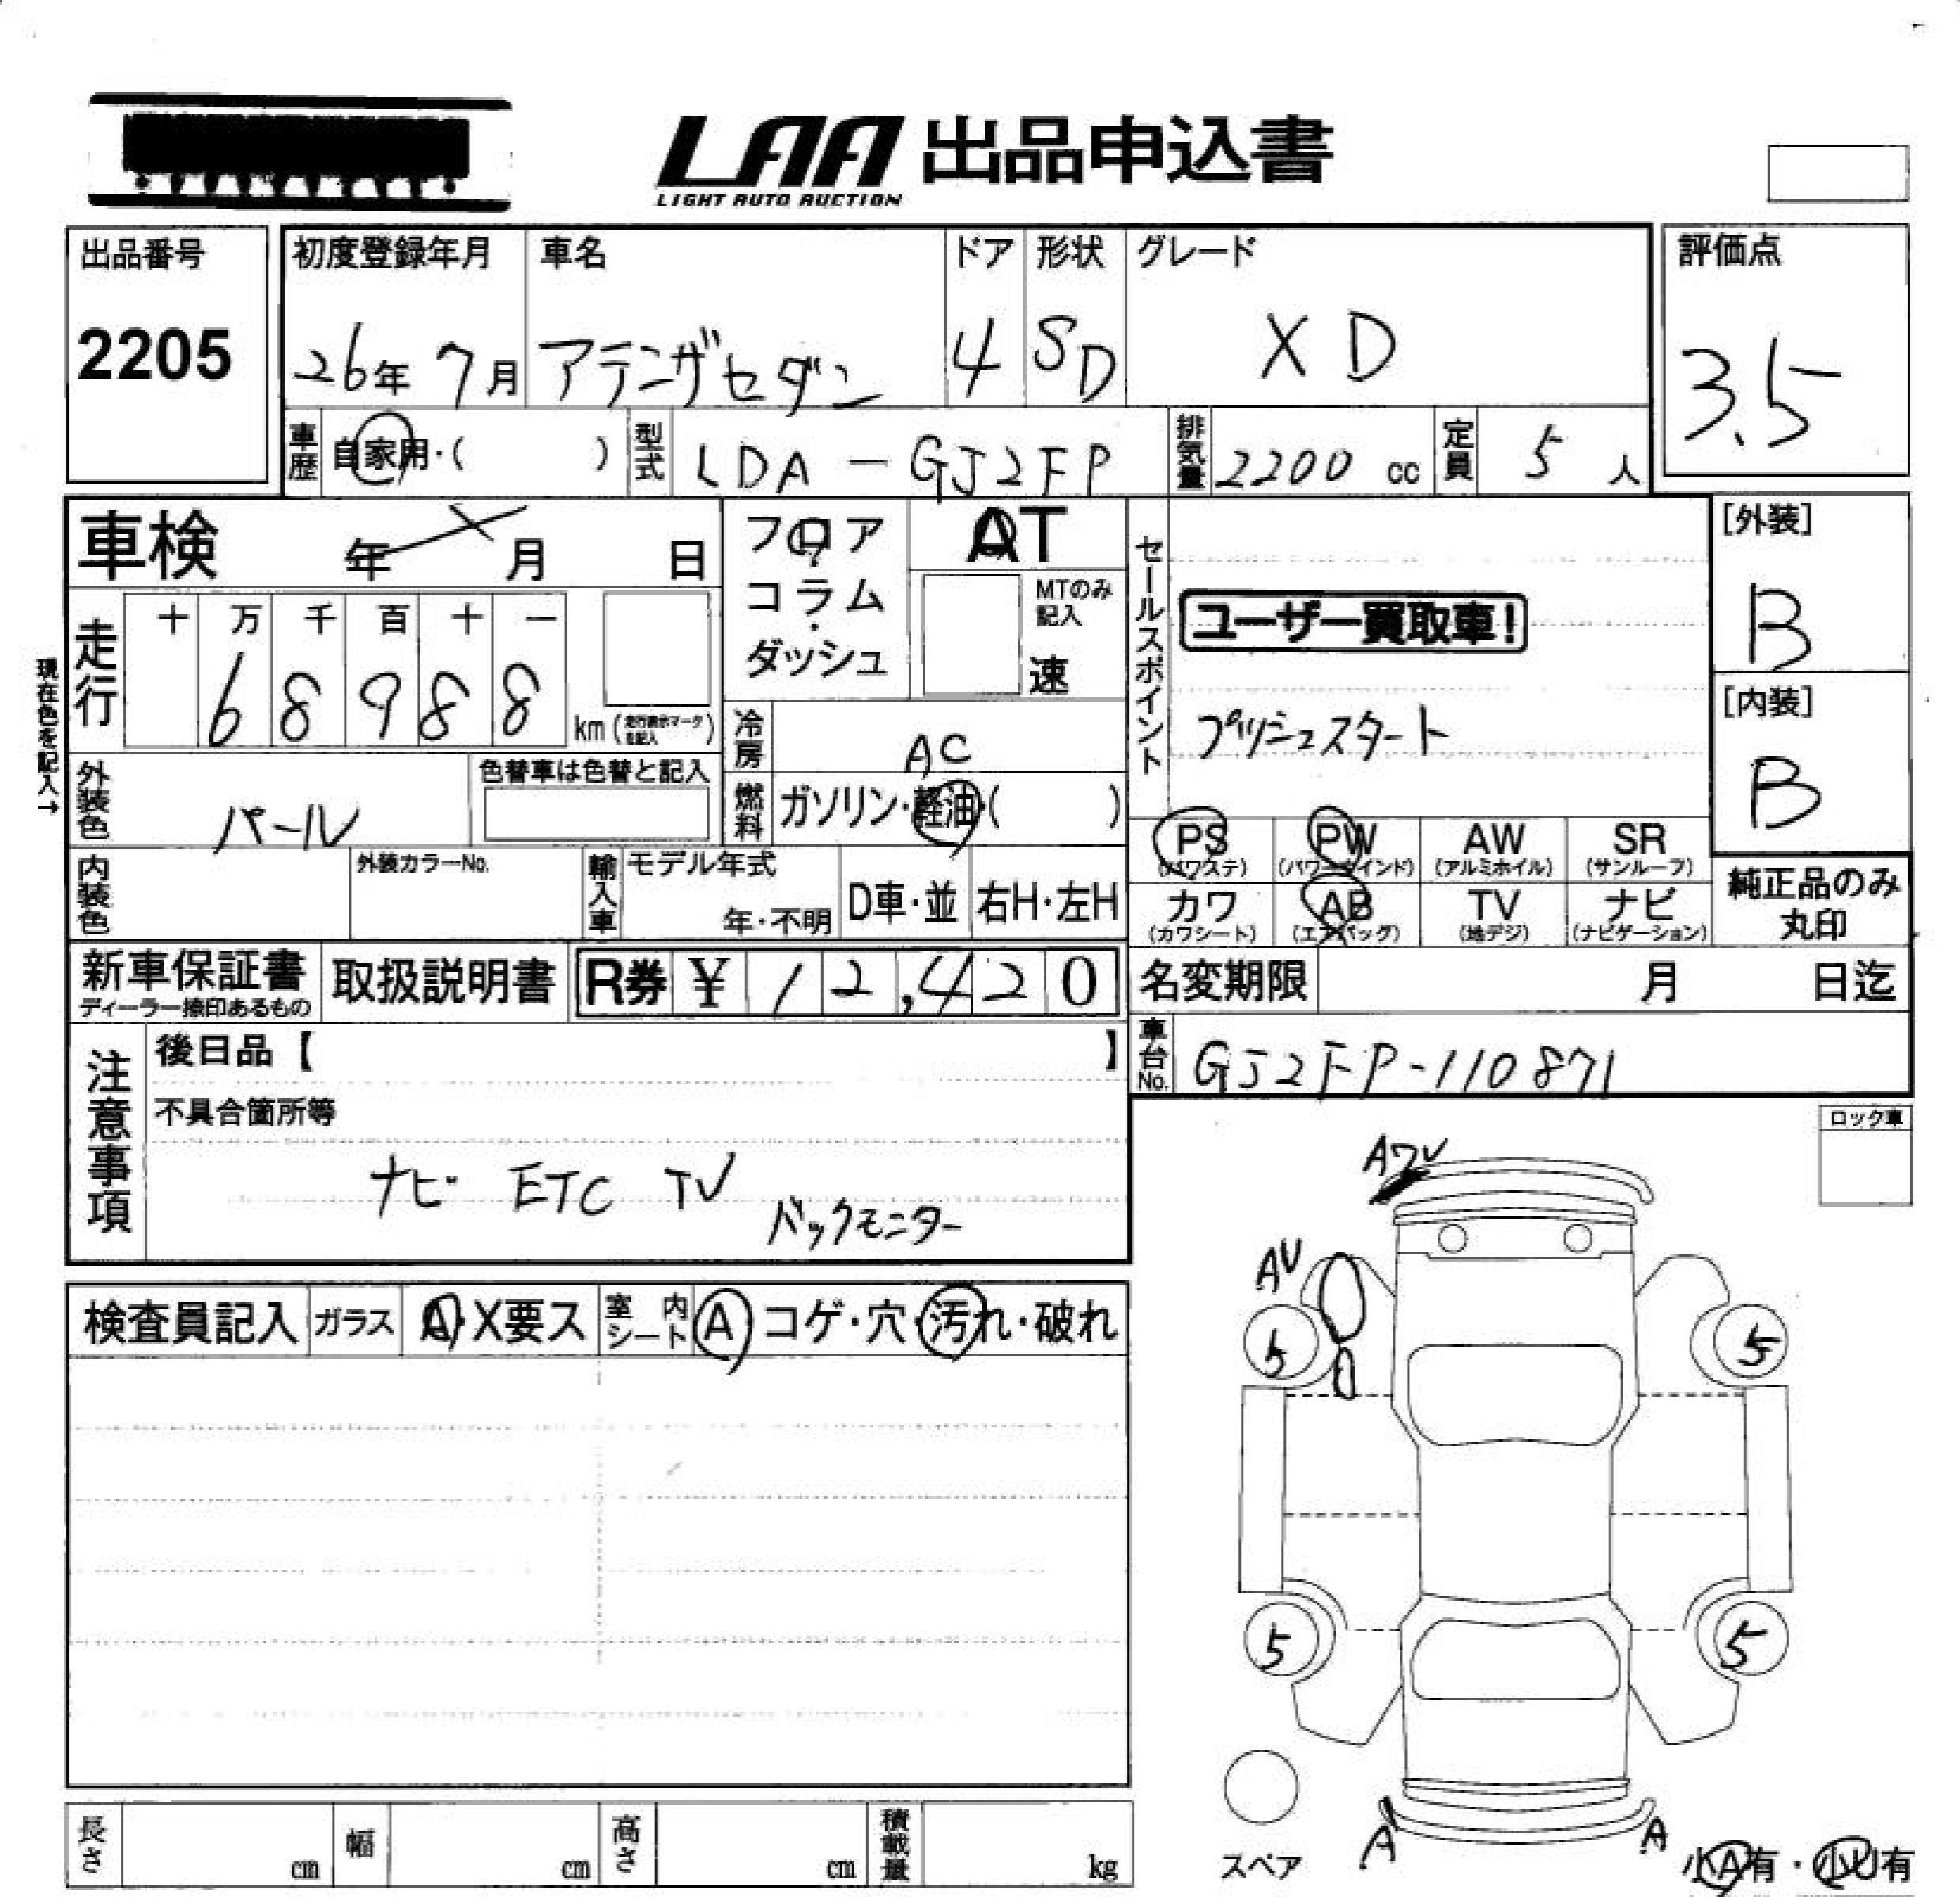 LAA 出品申込書
LIGHT AUTO AUCTION
出品番号
2205
初度登録年月
26年 7月
車名
アテンザセダン
ドア
4
形状
SD
グレード
XD
評価点
3.5
車歴 自家用・( )
型式 LDA-GJ2FP
排気量 2200 cc
定員 5 人
車検 年 月 日
フロア・コラム・ダッシュ
AT
MTのみ記入
速
セールスポイント
ユーザー買取車!
プッシュスタート
[外装]
B
[内装]
B
現在色を記入→
走行
十 万 千 百 十 一
6 8 9 8 8
km (走行表示マークを記入)
冷房 AC
燃料 ガソリン・軽油・( )
外装色 パール
色替車は色替と記入
内装色
外装カラーNo.
輸入車
モデル年式
年・不明
D車・並
右H・左H
PS (パワステ)
PW (パワーウインド)
AW (アルミホイル)
SR (サンルーフ)
カワ (カワシート)
AB (エアバッグ)
TV (地デジ)
ナビ (ナビゲーション)
純正品のみ
丸印
新車保証書
ディーラー捺印あるもの
取扱説明書
R券 ¥ 12,420
名変期限 月 日迄
車台No. GJ2FP-110871
注意事項
後日品【 】
不具合箇所等
ナビ ETC TV
バックモニター
ロック車
検査員記入
ガラス A・X要ス
室内シート A コゲ・穴・汚れ・破れ
AV
5
5
5
5
スペア
A
A
小A有・小U有
長さ cm
幅 cm
高さ cm
積載量 kg